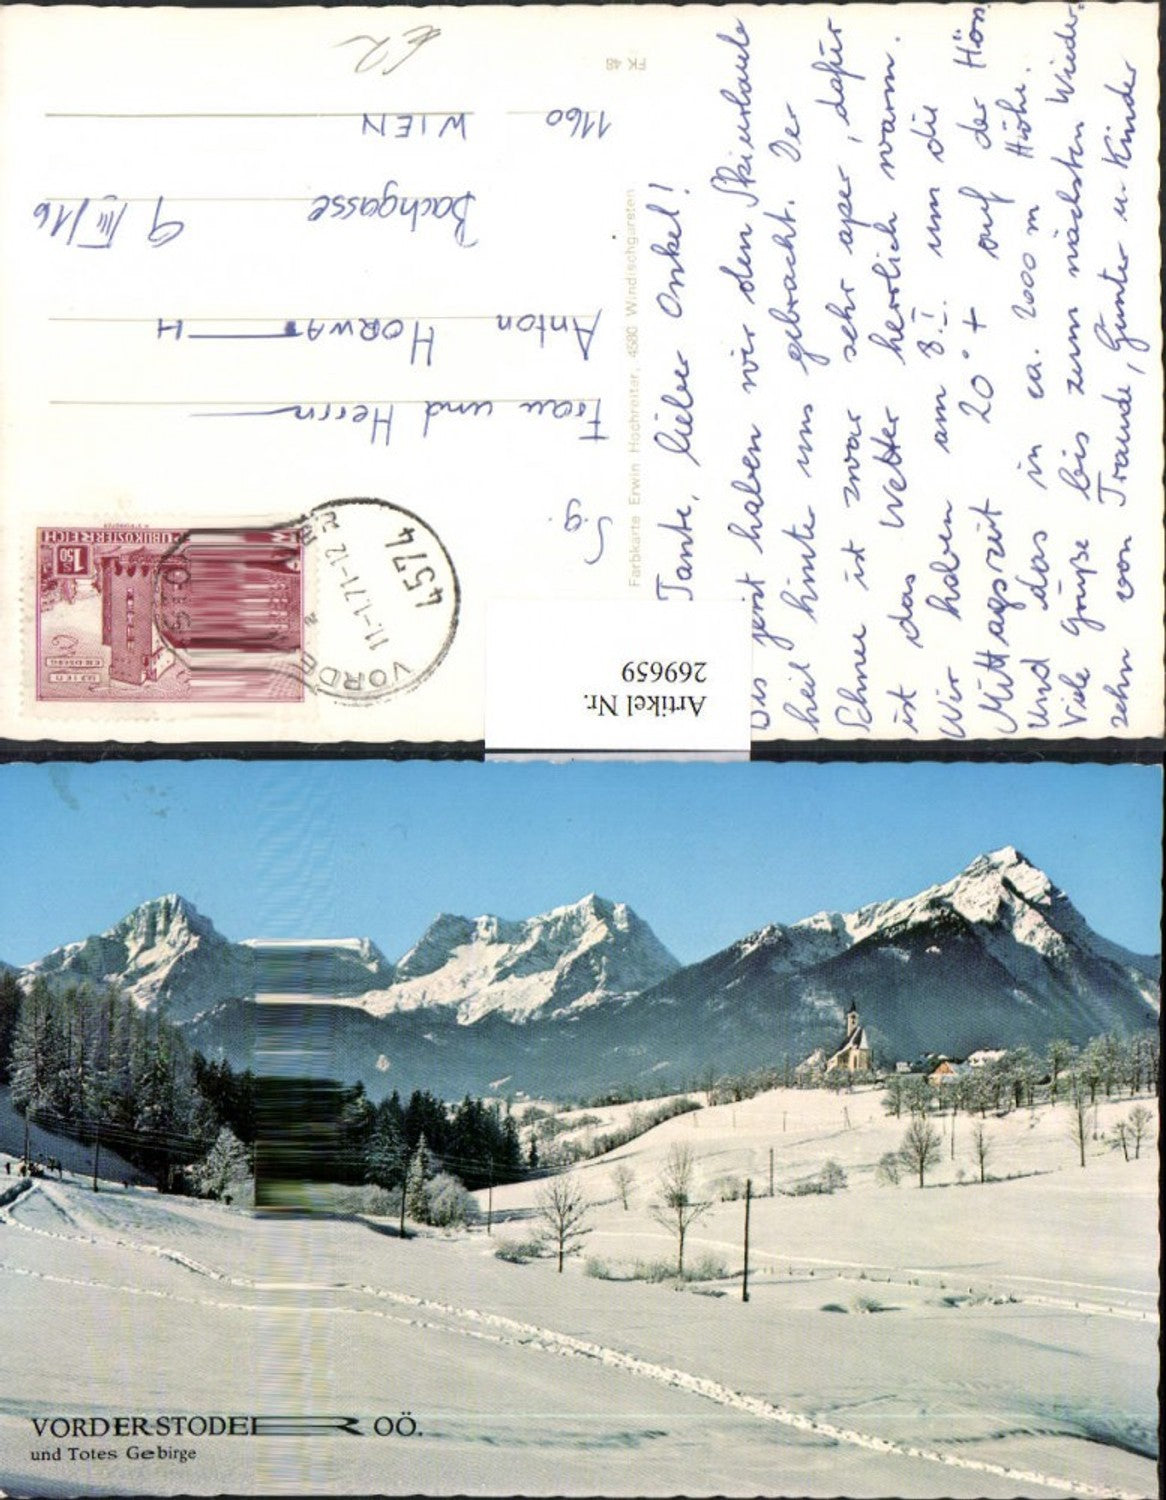 €2
FK 48
1160
WIEN
Bachgasse
9/III/16
Anton HORWATH
Frau und Herrn
S.g.
Farbkarte Erwin Hochreiter, 4580 Windischgarsten
REPUBLIK ÖSTERREICH
S 1.50
WIEN
VORDERSTODER
11.-1.71-12
4574
Tante, lieber Onkel!
Bis jetzt haben wir den Skiurlaub
heil hinter uns gebracht. Der
Schnee ist zwar sehr aper, dafür
ist das Wetter herrlich warm.
Wir haben am 8.I. um die
Mittagszeit 20°+ auf der Höss
Und das in ca. 2000 m Höhe.
Viele Grüße bis zum nächsten Wieder-
sehn von Traude, Günter u. Kinder
Artikel Nr.
269659
VORDERSTODER OÖ.
und Totes Gebirge